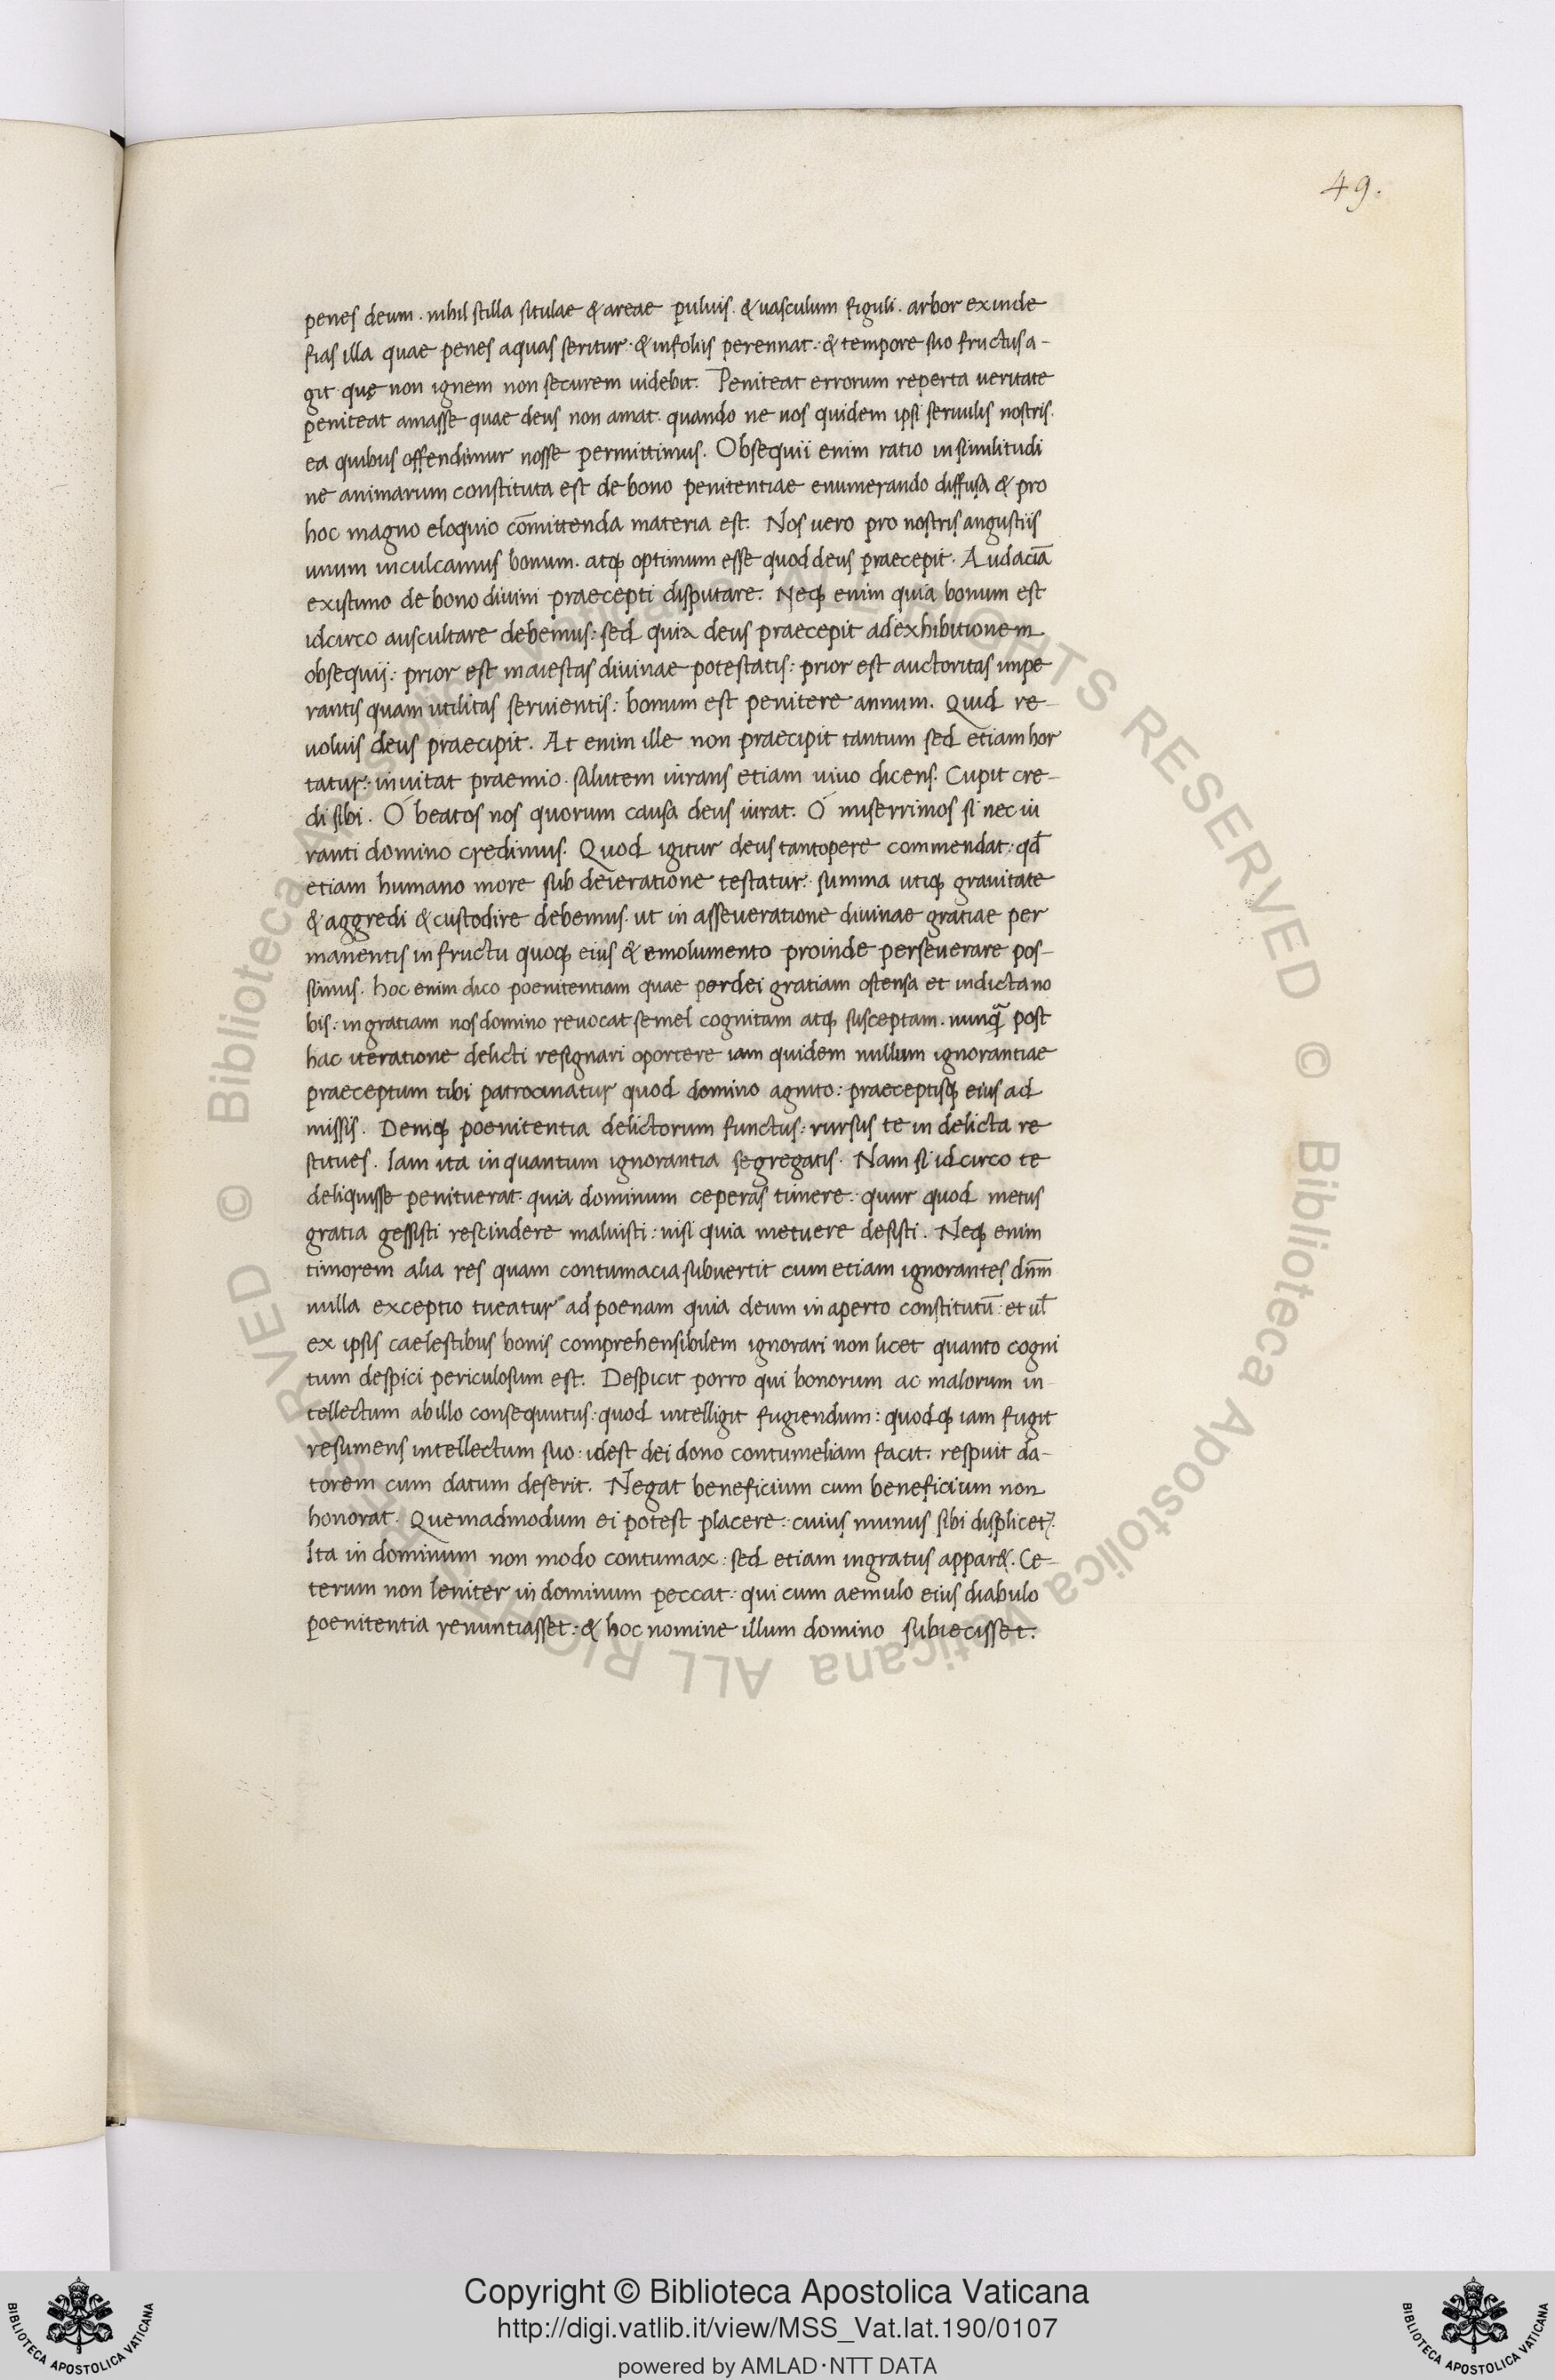 49.
penes deum. nihil stilla situlae & areae puluis. & uasculum figuli. arbor exinde
fias illa quae penes aquas seritur. & in foliis perennat: & tempore suo fructus a-
git quę non ignem non securem uidebit. Peniteat errorum reperta ueritate
peniteat amasse quae deus non amat. quando ne nos quidem ipsi seruulis nostris.
ea quibus offendimur nosse permittimus. Obsequii enim ratio in similitudi
ne animarum constituta est de bono penitentiae enumerando diffusa & pro
hoc magno eloquio com̄ittenda materia est. Nos uero pro nostris angustiis
unum inculcamus bonum. atq; optimum esse quod deus praecepit. Audaciā
existimo de bono diuini praecepti disputare. Neq; enim quia bonum est
idcirco auscultare debemus: sed quia deus praecepit ad exhibitionem
obsequij: prior est maiestas diuinae potestatis: prior est auctoritas impe
rantis quam utilitas seruientis: bonum est penitere annum. Quid re-
uoluis deus praecipit. At enim ille non praecipit tantum sed etiam hor
tatur: inuitat praemio. salutem iurans etiam uiuo dicens. Cupit cre-
di sibi. Ó beatos nos quorum causa deus iurat. Ó miserrimos si nec iu
ranti domino credimus. Quod igitur deus tantopere commendat: qd̄
etiam humano more sub deieratione testatur: summa utiq; grauitate
& aggredi & custodire debemus. ut in asseueratione diuinae gratiae per
manentis in fructu quoq; eius & emolumento proinde perseuerare pos-
simus. hoc enim dico poenitentiam quae per dei gratiam ostensa et indicta no
bis: in gratiam nos domino reuocat semel cognitam atq; susceptam. nunqā post
hac iteratione delicti resignari oportere iam quidem nullum ignorantiae
praeceptum tibi patrocinatur quod domino agnito: praeceptisq; eius ad
missis. Deniq; poenitentia delictorum functus: rursus te in delicta re
stitues. Iam ita in quantum ignorantia segregatis. Nam si idcirco te
deliquisse penituerat. quia dominum ceperas timere: quur quod metus
gratia gessisti rescindere maluisti: nisi quia metuere desisti. Neq; enim
timorem alia res quam contumacia subuertit cum etiam ignorantes dn̄m
nulla exceptio tueatur ad poenam quia deum in aperto constitutū: et ul̄
ex ipsis caelestibus bonis comprehensibilem ignorari non licet quanto cogni
tum despici periculosum est. Despicit porro qui bonorum ac malorum in
tellectum ab illo consequutus: quod intelligit fugiendum: quodq; iam fugit
resumens intellectum suo: idest dei dono contumeliam facit. respuit da-
torem cum datum deserit. Negat beneficium cum beneficium non
honorat. Quemadmodum ei potest placere: cuius munus sibi displicet?
Ita in dominum non modo contumax: sed etiam ingratus appar&. Ce-
terum non leniter in dominum peccat: qui cum aemulo eius diabulo
poenitentia renuntiasset: & hoc nomine illum domino subiecisset.
© Biblioteca Apostolica Vaticana ALL RIGHTS RESERVED © Biblioteca Apostolica Vaticana ALL RIGHTS RESERVED
Copyright © Biblioteca Apostolica Vaticana
http://digi.vatlib.it/view/MSS_Vat.lat.190/0107
powered by AMLAD·NTT DATA
BIBLIOTECA APOSTOLICA VATICANA
BIBLIOTECA APOSTOLICA VATICANA